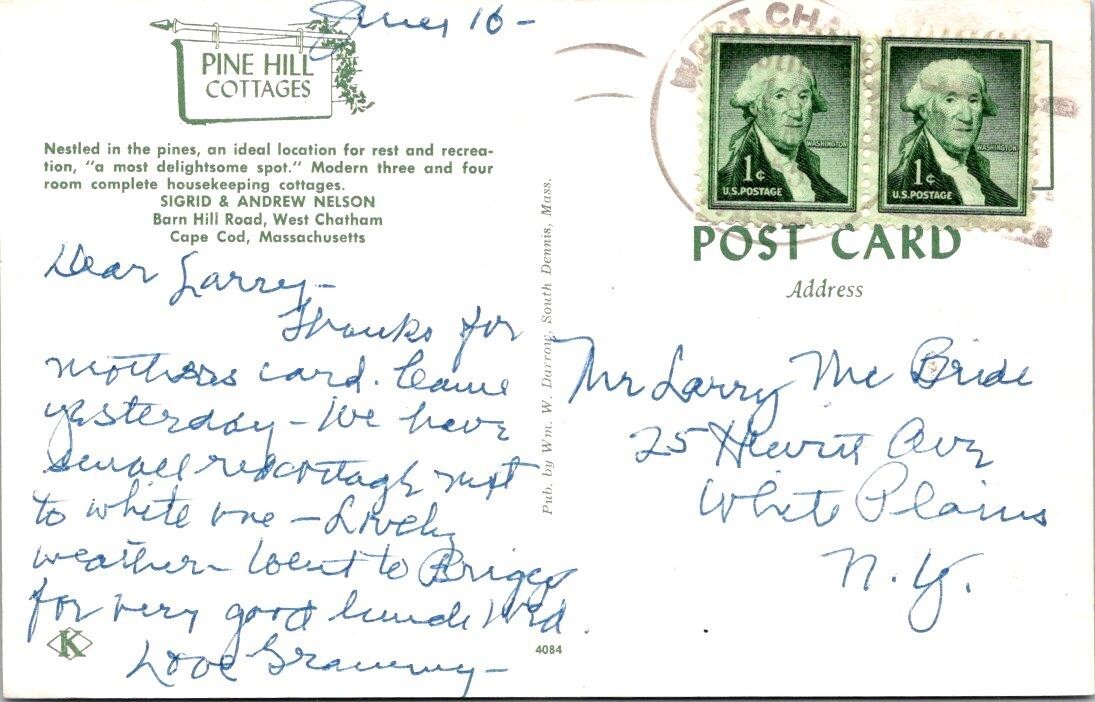 June 16 -
PINE HILL
COTTAGES
Nestled in the pines, an ideal location for rest and recrea-
tion, "a most delightsome spot." Modern three and four
room complete housekeeping cottages.
SIGRID & ANDREW NELSON
Barn Hill Road, West Chatham
Cape Cod, Massachusetts
Dear Larry -
Thanks for
mothers card. Came
yesterday - We have
small red cottage next
to white one - Lovely
weather - Went to Briggs
for very good lunch Wed.
Love Grammy -
K
4084
Pub. by Wm. W. Darrow, South Dennis, Mass.
WEST CHA
WASHINGTON
1¢
U.S. POSTAGE
WASHINGTON
1¢
U.S. POSTAGE
POST CARD
Address
Mr Larry Mc Bride
25 Ave
White Plains
N.Y.